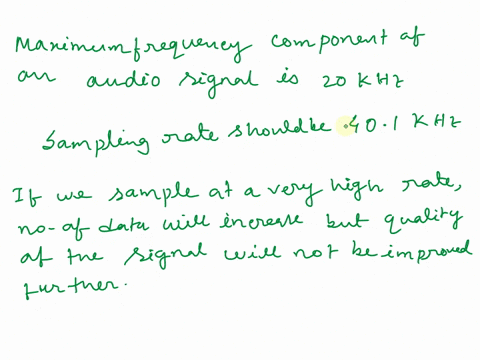 Maximum frequency component of
an audio signal is 20 KHz
Sampling rate should be 40.1 KHz
If we sample at a very high rate,
no. of data will increase but quality
of the signal will not be improved
further.